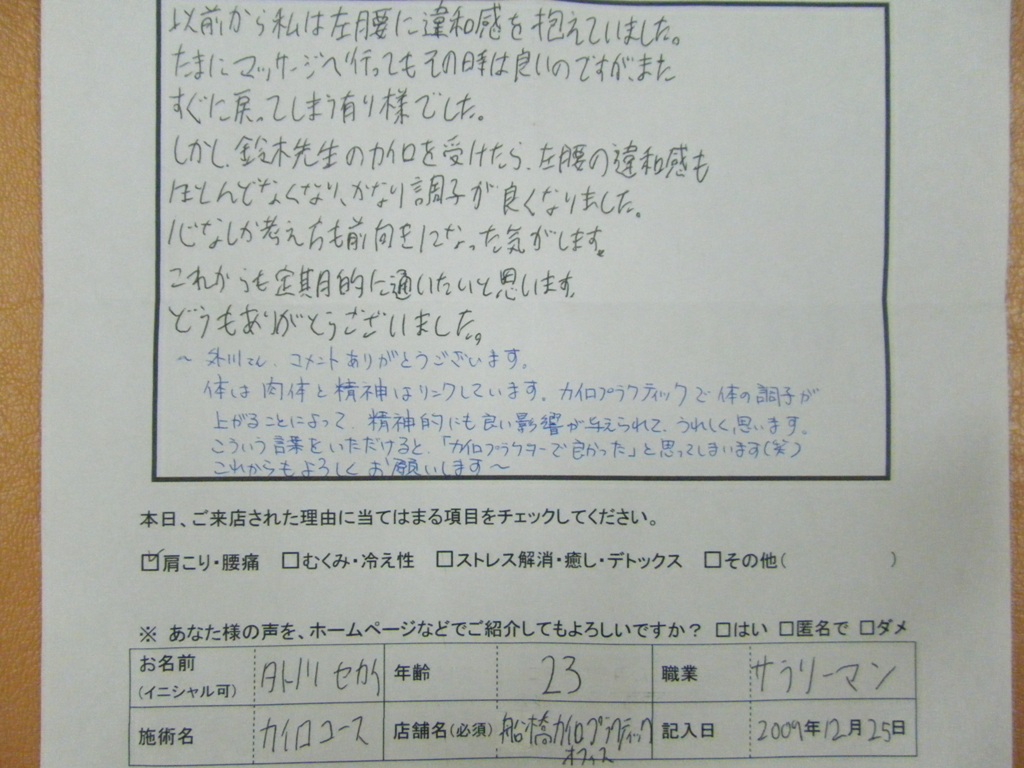 以前から私は左腰に違和感を抱えていました。
たまにマッサージへ行ってもその時は良いのですが、また
すぐに戻ってしまう有り様でした。
しかし、鈴木先生のカイロを受けたら、左腰の違和感も
ほとんどなくなり、かなり調子が良くなりました。
心なしか考え方も前向きになった気がします。
これからも定期的に通いたいと思います。
どうもありがとうございました。
～外川さん、コメントありがとうございます。
体は肉体と精神はリンクしています。カイロプラクティックで体の調子が
上がることによって、精神的にも良い影響が与えられて、うれしく思います。
こういう言葉をいただけると、「カイロプラクターで良かった」と思ってしまいます(笑)
これからもよろしくお願いします～
本日、ご来店された理由に当てはまる項目をチェックしてください。
☑肩こり・腰痛 □むくみ・冷え性 □ストレス解消・癒し・デトックス □その他( )
※ あなた様の声を、ホームページなどでご紹介してもよろしいですか? □はい □匿名で □ダメ
お名前 (イニシャル可) 外川 セカイ 年齢 23 職業 サラリーマン
施術名 カイロコース 店舗名(必須) 船橋カイロプラクティックオフィス 記入日 2009年12月25日